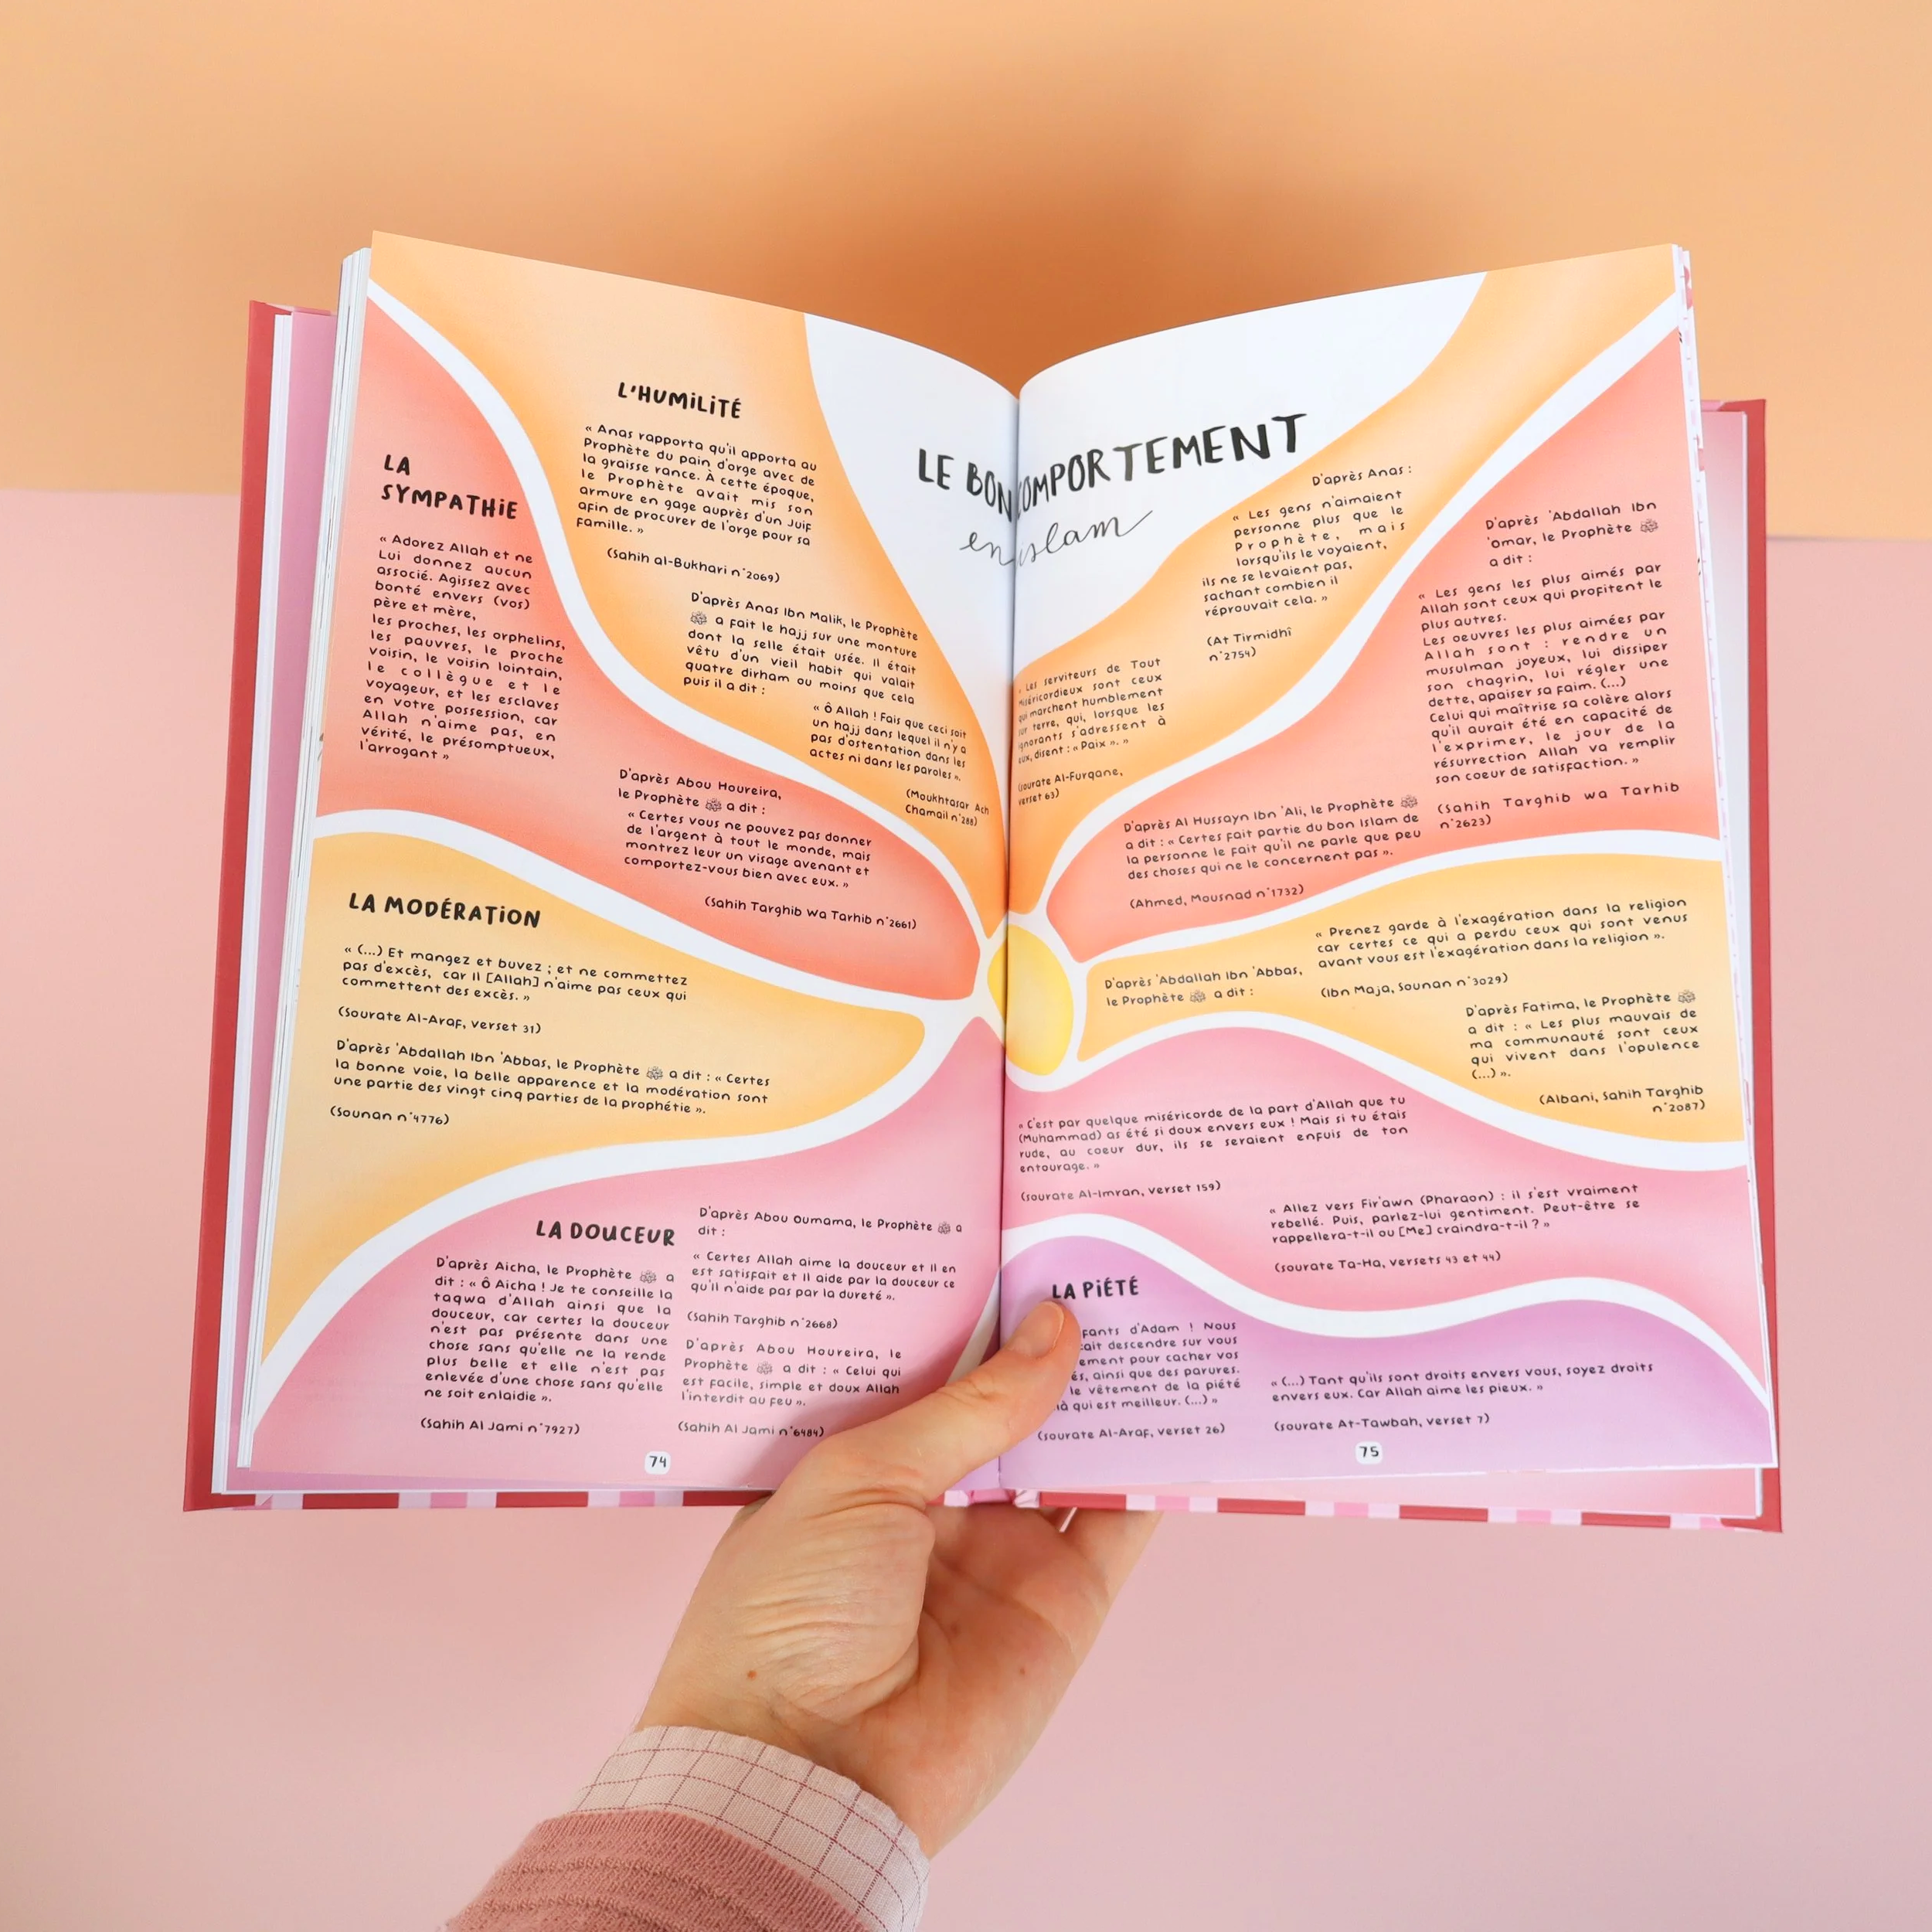 LE BON COMPORTEMENT
en islam
L'HUMILITÉ
« Anas rapporta qu'il apporta au
Prophète du pain d'orge avec de
la graisse rance. À cette époque,
le Prophète avait mis son
armure en gage auprès d'un Juif
afin de procurer de l'orge pour sa
famille. »
(Sahih al-Bukhari n°2069)
D'après Anas Ibn Malik, le Prophète
ﷺ a fait le hajj sur une monture
dont la selle était usée. Il était
vêtu d'un vieil habit qui valait
quatre dirham ou moins que cela
puis il a dit :
« Ô Allah ! Fais que ceci soit
un hajj dans lequel il n'y a
pas d'ostentation dans les
actes ni dans les paroles ».
(Moukhtasar Ach
Chamail n°288)
LA
SYMPATHIE
« Adorez Allah et ne
Lui donnez aucun
associé. Agissez avec
bonté envers (vos)
père et mère,
les proches, les orphelins,
les pauvres, le proche
voisin, le voisin lointain,
le collègue et le
voyageur, et les esclaves
en votre possession, car
Allah n'aime pas, en
vérité, le présomptueux,
l'arrogant »
D'après Abou Houreira,
le Prophète ﷺ a dit :
« Certes vous ne pouvez pas donner
de l'argent à tout le monde, mais
montrez leur un visage avenant et
comportez-vous bien avec eux. »
(Sahih Targhib Wa Tarhib n°2661)
LA MODÉRATION
« (...) Et mangez et buvez ; et ne commettez
pas d'excès, car Il [Allah] n'aime pas ceux qui
commettent des excès. »
(Sourate Al-Araf, verset 31)
D'après 'Abdallah Ibn 'Abbas, le Prophète ﷺ a dit : « Certes
la bonne voie, la belle apparence et la modération sont
une partie des vingt cinq parties de la prophétie ».
(Sounan n°4776)
LA DOUCEUR
D'après Aicha, le Prophète ﷺ a
dit : « Ô Aicha ! Je te conseille la
taqwa d'Allah ainsi que la
douceur, car certes la douceur
n'est pas présente dans une
chose sans qu'elle ne la rende
plus belle et elle n'est pas
enlevée d'une chose sans qu'elle
ne soit enlaidie ».
(Sahih Al Jami n°7927)
D'après Abou Oumama, le Prophète ﷺ a
dit :
« Certes Allah aime la douceur et il en
est satisfait et Il aide par la douceur ce
qu'Il n'aide pas par la dureté ».
(Sahih Targhib n°2668)
D'après Abou Houreira, le
Prophète ﷺ a dit : « Celui qui
est facile, simple et doux Allah
l'interdit au feu ».
(Sahih Al Jami n°6484)
74
D'après Anas :
« Les gens n'aimaient
personne plus que le
Prophète, mais
lorsqu'ils le voyaient,
ils ne se levaient pas,
sachant combien il
réprouvait cela. »
(At Tirmidhî
n°2754)
Les serviteurs de Tout
Miséricordieux sont ceux
qui marchent humblement
sur terre, qui, lorsque les
ignorants s'adressent à
eux, disent : « Paix ». »
(sourate Al-Furqane,
verset 63)
D'après 'Abdallah Ibn
'Omar, le Prophète ﷺ
a dit :
« Les gens les plus aimés par
Allah sont ceux qui profitent le
plus autres.
Les oeuvres les plus aimées par
Allah sont : rendre un
musulman joyeux, lui dissiper
son chagrin, lui régler une
dette, apaiser sa faim. (...)
Celui qui maîtrise sa colère alors
qu'il aurait été en capacité de
l'exprimer, le jour de la
résurrection Allah va remplir
son coeur de satisfaction. »
(Sahih Targhib wa Tarhib
n°2623)
D'après Al Hussayn Ibn 'Ali, le Prophète ﷺ
a dit : « Certes fait partie du bon Islam de
la personne le fait qu'il ne parle que peu
des choses qui ne le concernent pas ».
(Ahmed, Mousnad n°1732)
D'après 'Abdallah Ibn 'Abbas,
le Prophète ﷺ a dit :
« Prenez garde à l'exagération dans la religion
car certes ce qui a perdu ceux qui sont venus
avant vous est l'exagération dans la religion ».
(Ibn Maja, Sounan n°3029)
D'après Fatima, le Prophète ﷺ
a dit : « Les plus mauvais de
ma communauté sont ceux
qui vivent dans l'opulence
(...) ».
(Albani, Sahih Targhib
n°2087)
« C'est par quelque miséricorde de la part d'Allah que tu
(Muhammad) as été si doux envers eux ! Mais si tu étais
rude, au coeur dur, ils se seraient enfuis de ton
entourage. »
(sourate Al-Imran, verset 159)
« Allez vers Fir'awn (Pharaon) : il s'est vraiment
rebellé. Puis, parlez-lui gentiment. Peut-être se
rappellera-t-il ou [Me] craindra-t-il ? »
(sourate Ta-Ha, versets 43 et 44)
LA PIÉTÉ
d'Adam ! Nous
descendre sur vous
pour cacher vos
ainsi que des parures.
le vêtement de la piété
qui est meilleur. (...) »
(sourate Al-Araf, verset 26)
« (...) Tant qu'ils sont droits envers vous, soyez droits
envers eux. Car Allah aime les pieux. »
(sourate At-Tawbah, verset 7)
75